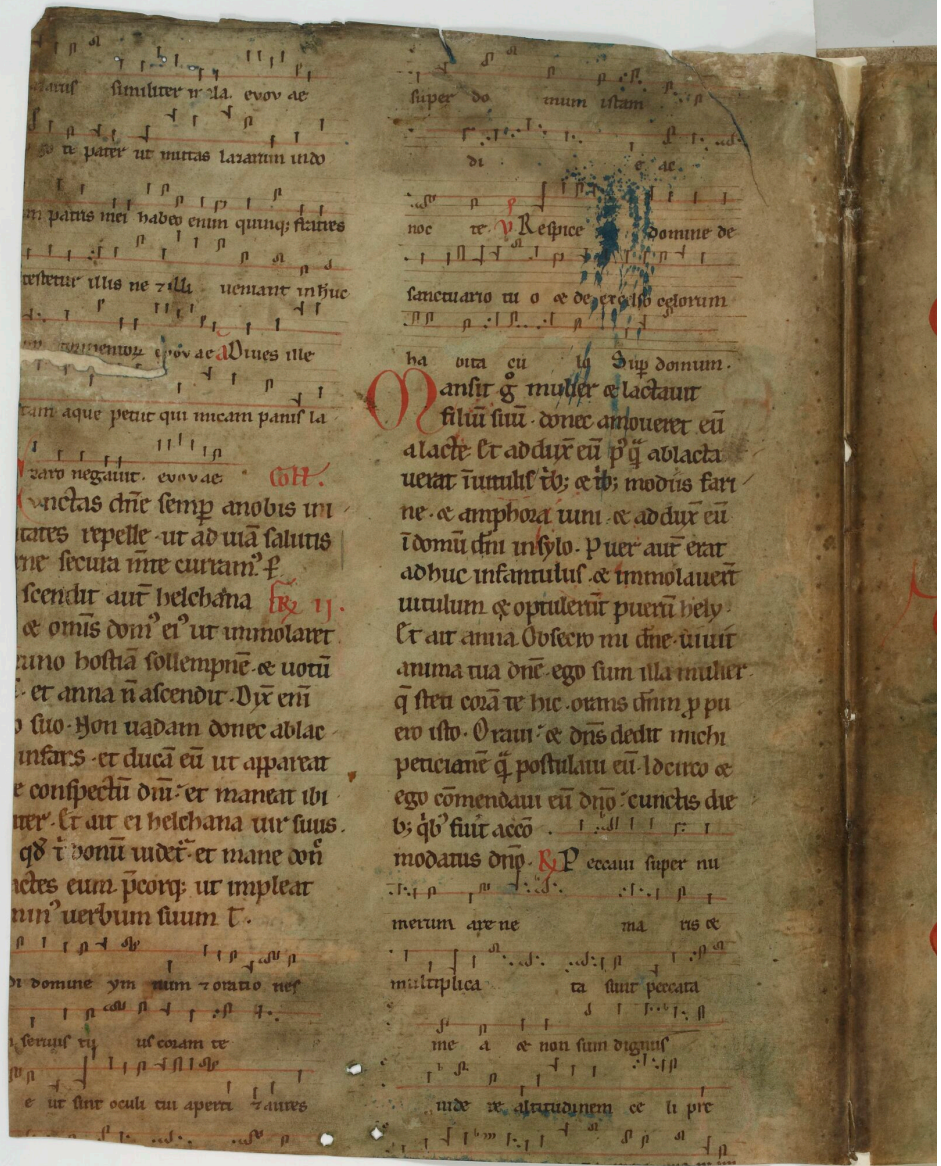 similiter mala. evovae
go te pater ut mittas lazarum in do
m patris mei habeo enim quinq; fratres
testetur illis ne ⁊ illi veniant in hūc
evovae a Dives ille
tam aque petiit qui micam panis la
zaro negavit. evovae Coll̄.
unctas dn̄e semp̄ anobis ini
tates repelle · ut ad viā salutis
secura m̄te
scendit aut̄ helchana II.
⁊ om̄is dom᷒ ei᷒ ut immolaret
hostiā sollempnē · ⁊ votū
et anna n̄ ascendit · Dix̄ eni̅
suo · Non vadam donec ablac
infans · et ducā eū ut appareat
e conspectū dn̄i · et maneat ibi
ter · Et ait ei helchana vir suus ·
qd̄ t̄ bonū videt̄ · et mane don̄
ctes eum · p̄corq; ut impleat
verbum suum
domine ymnum ⁊ oratio nes
servus tu us coram te
e ut sint oculi tui aperti ⁊ aures
super do mum istam
di e ac
noc te. ℣ Respice domine de
sanctuario tu o ⁊ de excelso celorum
ha bita cu lo Sup̄ domum ·
Mansit gͦ mulier ⁊ lactavit
filiū suū · donec amoveret eū
a lacte · Et addux̄ eū p᷒ q̄ ablacta
verat ī vitulis tͥb; ⁊ tͥb; modiis fari
ne · ⁊ amphora vini · ⁊ addux̄ eū
ī domū dn̄i in sylo · Puer aut̄ erat
adhuc infantulus · ⁊ immolaver̄t
vitulum ⁊ optuler̄t puerū hely ·
Et ait anna · Obsecro mi dn̄e · vivit
anima tua dn̄e · ego sum illa mulier
q̄ steti corā te hic · orans dn̄m p̱ pu
ero isto · Oravi · ⁊ dn̄s dedit michi
peticionē q̄ postulavi eū · Idcirco ⁊
ego cōmendavi eū dn̄o · cunctis die
b; qͥb᷒ fuīt acco
modatus dn̄o · ℟ Peccavi super nu
merum arene ma ris ⁊
multiplica ta sunt peccata
me a ⁊ non sum dignus
vide re altitudinem ce li pre